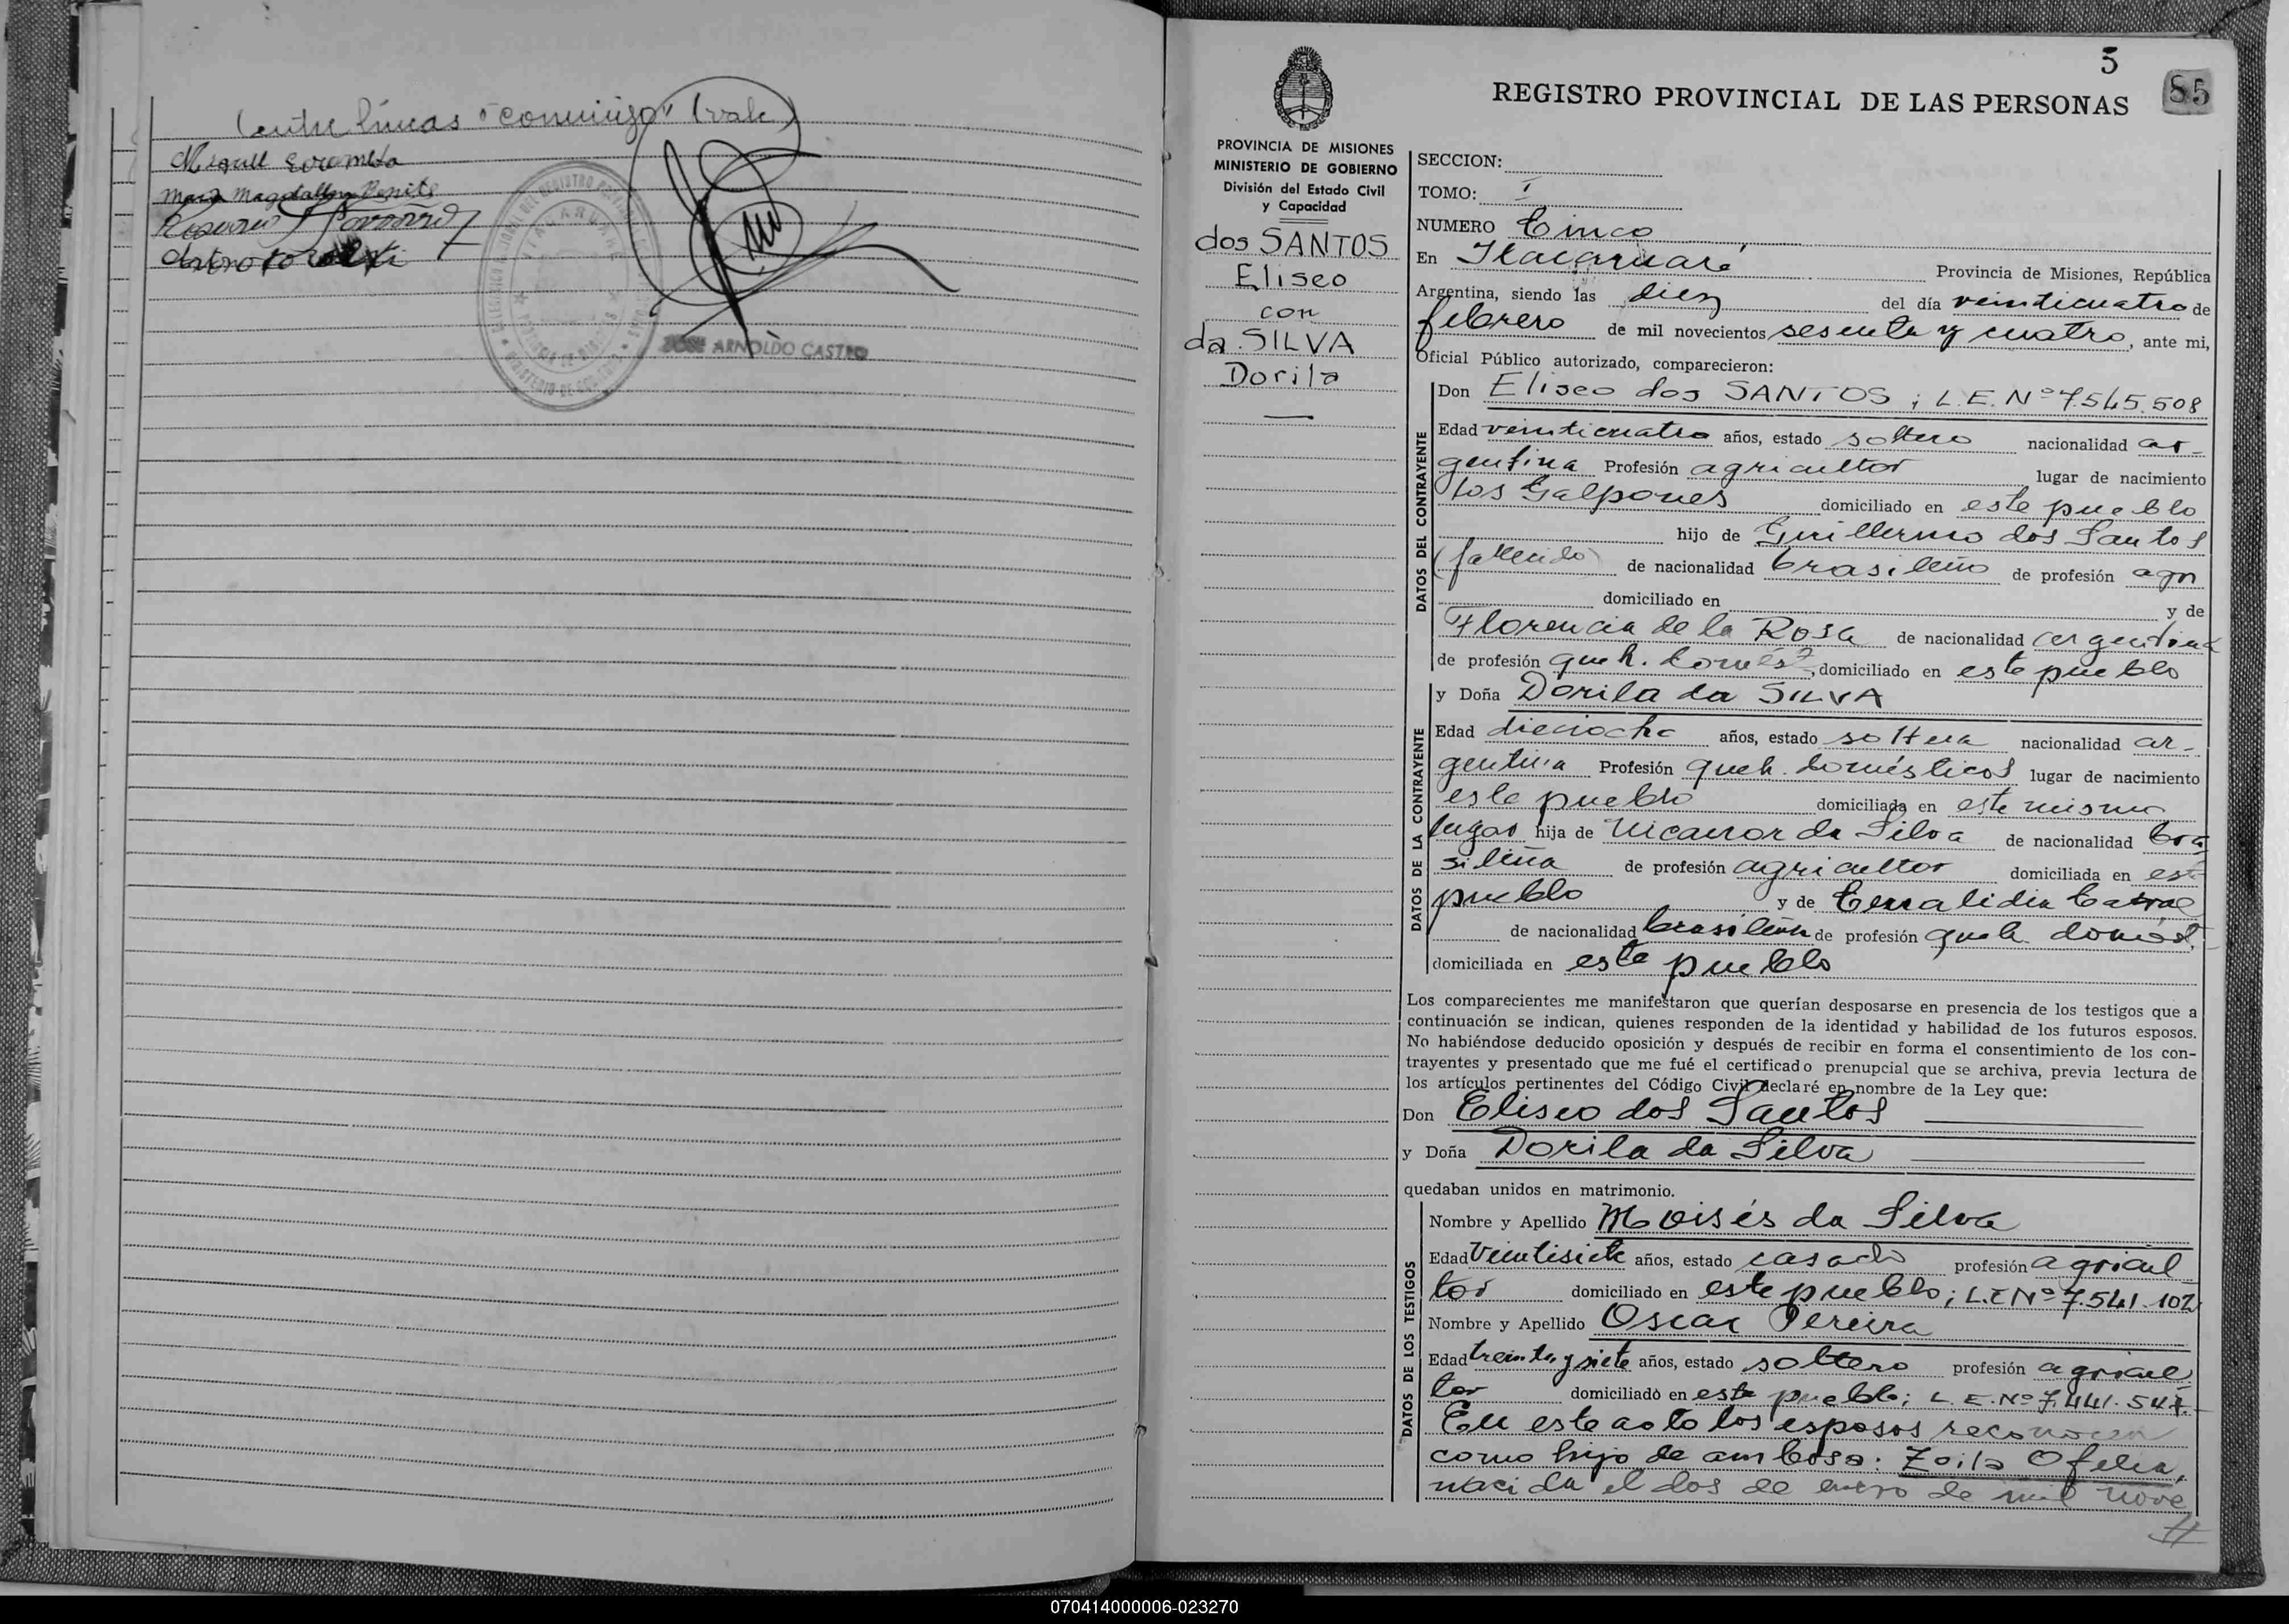 (entre líneas "conmigo" (vale)
Miguel
Maria Magdalena
JOSE ARNOLDO CASTRO
5
85
REGISTRO PROVINCIAL DE LAS PERSONAS
PROVINCIA DE MISIONES
MINISTERIO DE GOBIERNO
División del Estado Civil
y Capacidad
dos SANTOS
Eliseo
con
da SILVA
Dorila
SECCION:
TOMO: I
NUMERO Cinco
En Itacaruaré Provincia de Misiones, República
Argentina, siendo las diez del día veinticuatro de
febrero de mil novecientos sesenta y cuatro, ante mi,
Oficial Público autorizado, comparecieron:
DATOS DEL CONTRAYENTE
Don Eliseo dos SANTOS; L.E. Nº 7.545.508
Edad veinticuatro años, estado soltero nacionalidad ar-
gentina Profesión agricultor lugar de nacimiento
Los Galpones domiciliado en este pueblo
hijo de Guillermo dos Santos
(fallecido) de nacionalidad brasileño de profesión agr
domiciliado en y de
Florencia de la Rosa de nacionalidad argentina
de profesión queh. domést, domiciliado en este pueblo
DATOS DE LA CONTRAYENTE
y Doña Dorila da SILVA
Edad dieciocho años, estado soltera nacionalidad ar-
gentina Profesión queh. domésticos lugar de nacimiento
este pueblo domiciliada en este mismo
lugar hija de Nicanor da Silva de nacionalidad bra
sileña de profesión agricultor domiciliada en este
pueblo y de
de nacionalidad brasileña de profesión queh. domést.
domiciliada en este pueblo
Los comparecientes me manifestaron que querían desposarse en presencia de los testigos que a
continuación se indican, quienes responden de la identidad y habilidad de los futuros esposos.
No habiéndose deducido oposición y después de recibir en forma el consentimiento de los con-
trayentes y presentado que me fué el certificado prenupcial que se archiva, previa lectura de
los artículos pertinentes del Código Civil declaré en nombre de la Ley que:
Don Eliseo dos Santos
y Doña Dorila da Silva
quedaban unidos en matrimonio.
DATOS DE LOS TESTIGOS
Nombre y Apellido Moisés da Silva
Edad Veintisiete años, estado casado profesión agricul
tor domiciliado en este pueblo; L.E Nº 7.541.102
Nombre y Apellido Oscar Pereira
Edad treinta y siete años, estado soltero profesión agricul
tor domiciliado en este pueblo; L.E. Nº 7.441.547.-
En este acto los esposos reconocen
como hijo de ambos: Zoila Ofelia,
nacida el dos de enero de mil nove
//
070414000006-023270